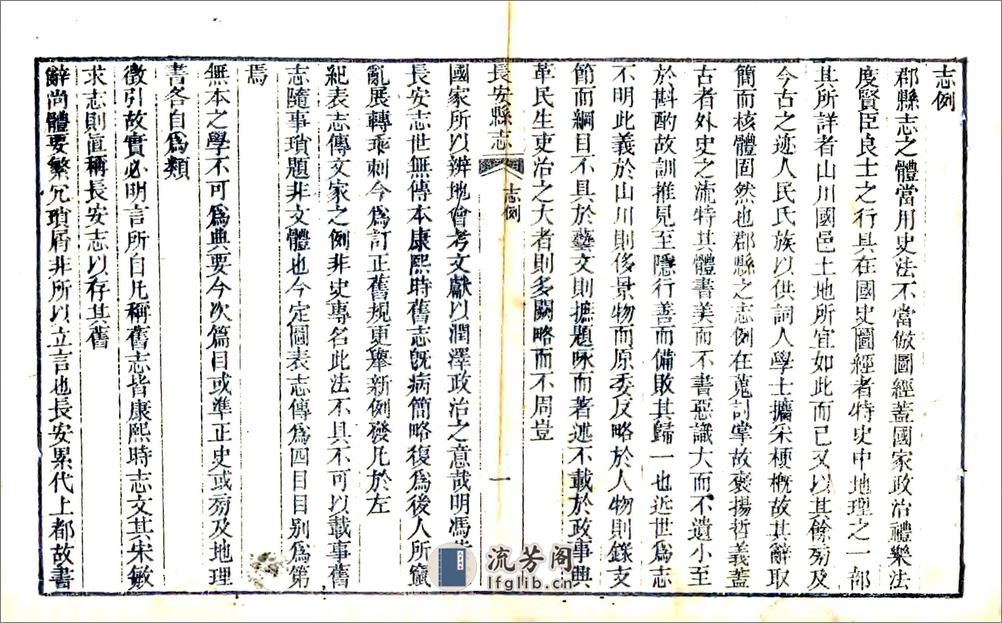 志例
郡縣志之體當用史法不當倣圖經葢國家政治禮樂法
度賢臣良士之行具在國史圖經者特史中地理之一部
其所詳者山川國邑土地所宜如此而已又以其餘㫄及
今古之迹人民氏族以供詞人學士攟采梗概故其辭取
簡而核體固然也郡縣之志例在蒐討掌故褒揚哲義葢
古者外史之流特其體書美而不書惡識大而不遺小至
於斟酌故訓推見至隱行善而備敗其歸一也近世爲志
不明此義於山川則侈景物而原委反略於人物則錄支
節而綱目不具於藝文則摭題咏而著述不載於政事興
革民生吏治之大者則多闕略而不周豈
長安縣志
志例
一
國家所以辨地會考文獻以潤澤政治之意哉明馮
長安志世無傳本康熙時舊志旣病簡略復爲後人所竄
亂展轉乖刺今爲訂正舊規更舉新例發凡於左
紀表志傳文家之例非史專名此法不具不可以載事舊
志隨事瑣題非文體也今定圖表志傳爲四目目別爲第
焉
無本之學不可爲典要今次篇目或準正史或㫄及地理
書各自爲類
徵引故實必明言所自凡稱舊志皆康熙時志文其宋敏
求志則直稱長安志以存其舊
辭尚體要繁冗瑣屑非所以立言也長安累代上都故書
流芳阁
lfglib.cn